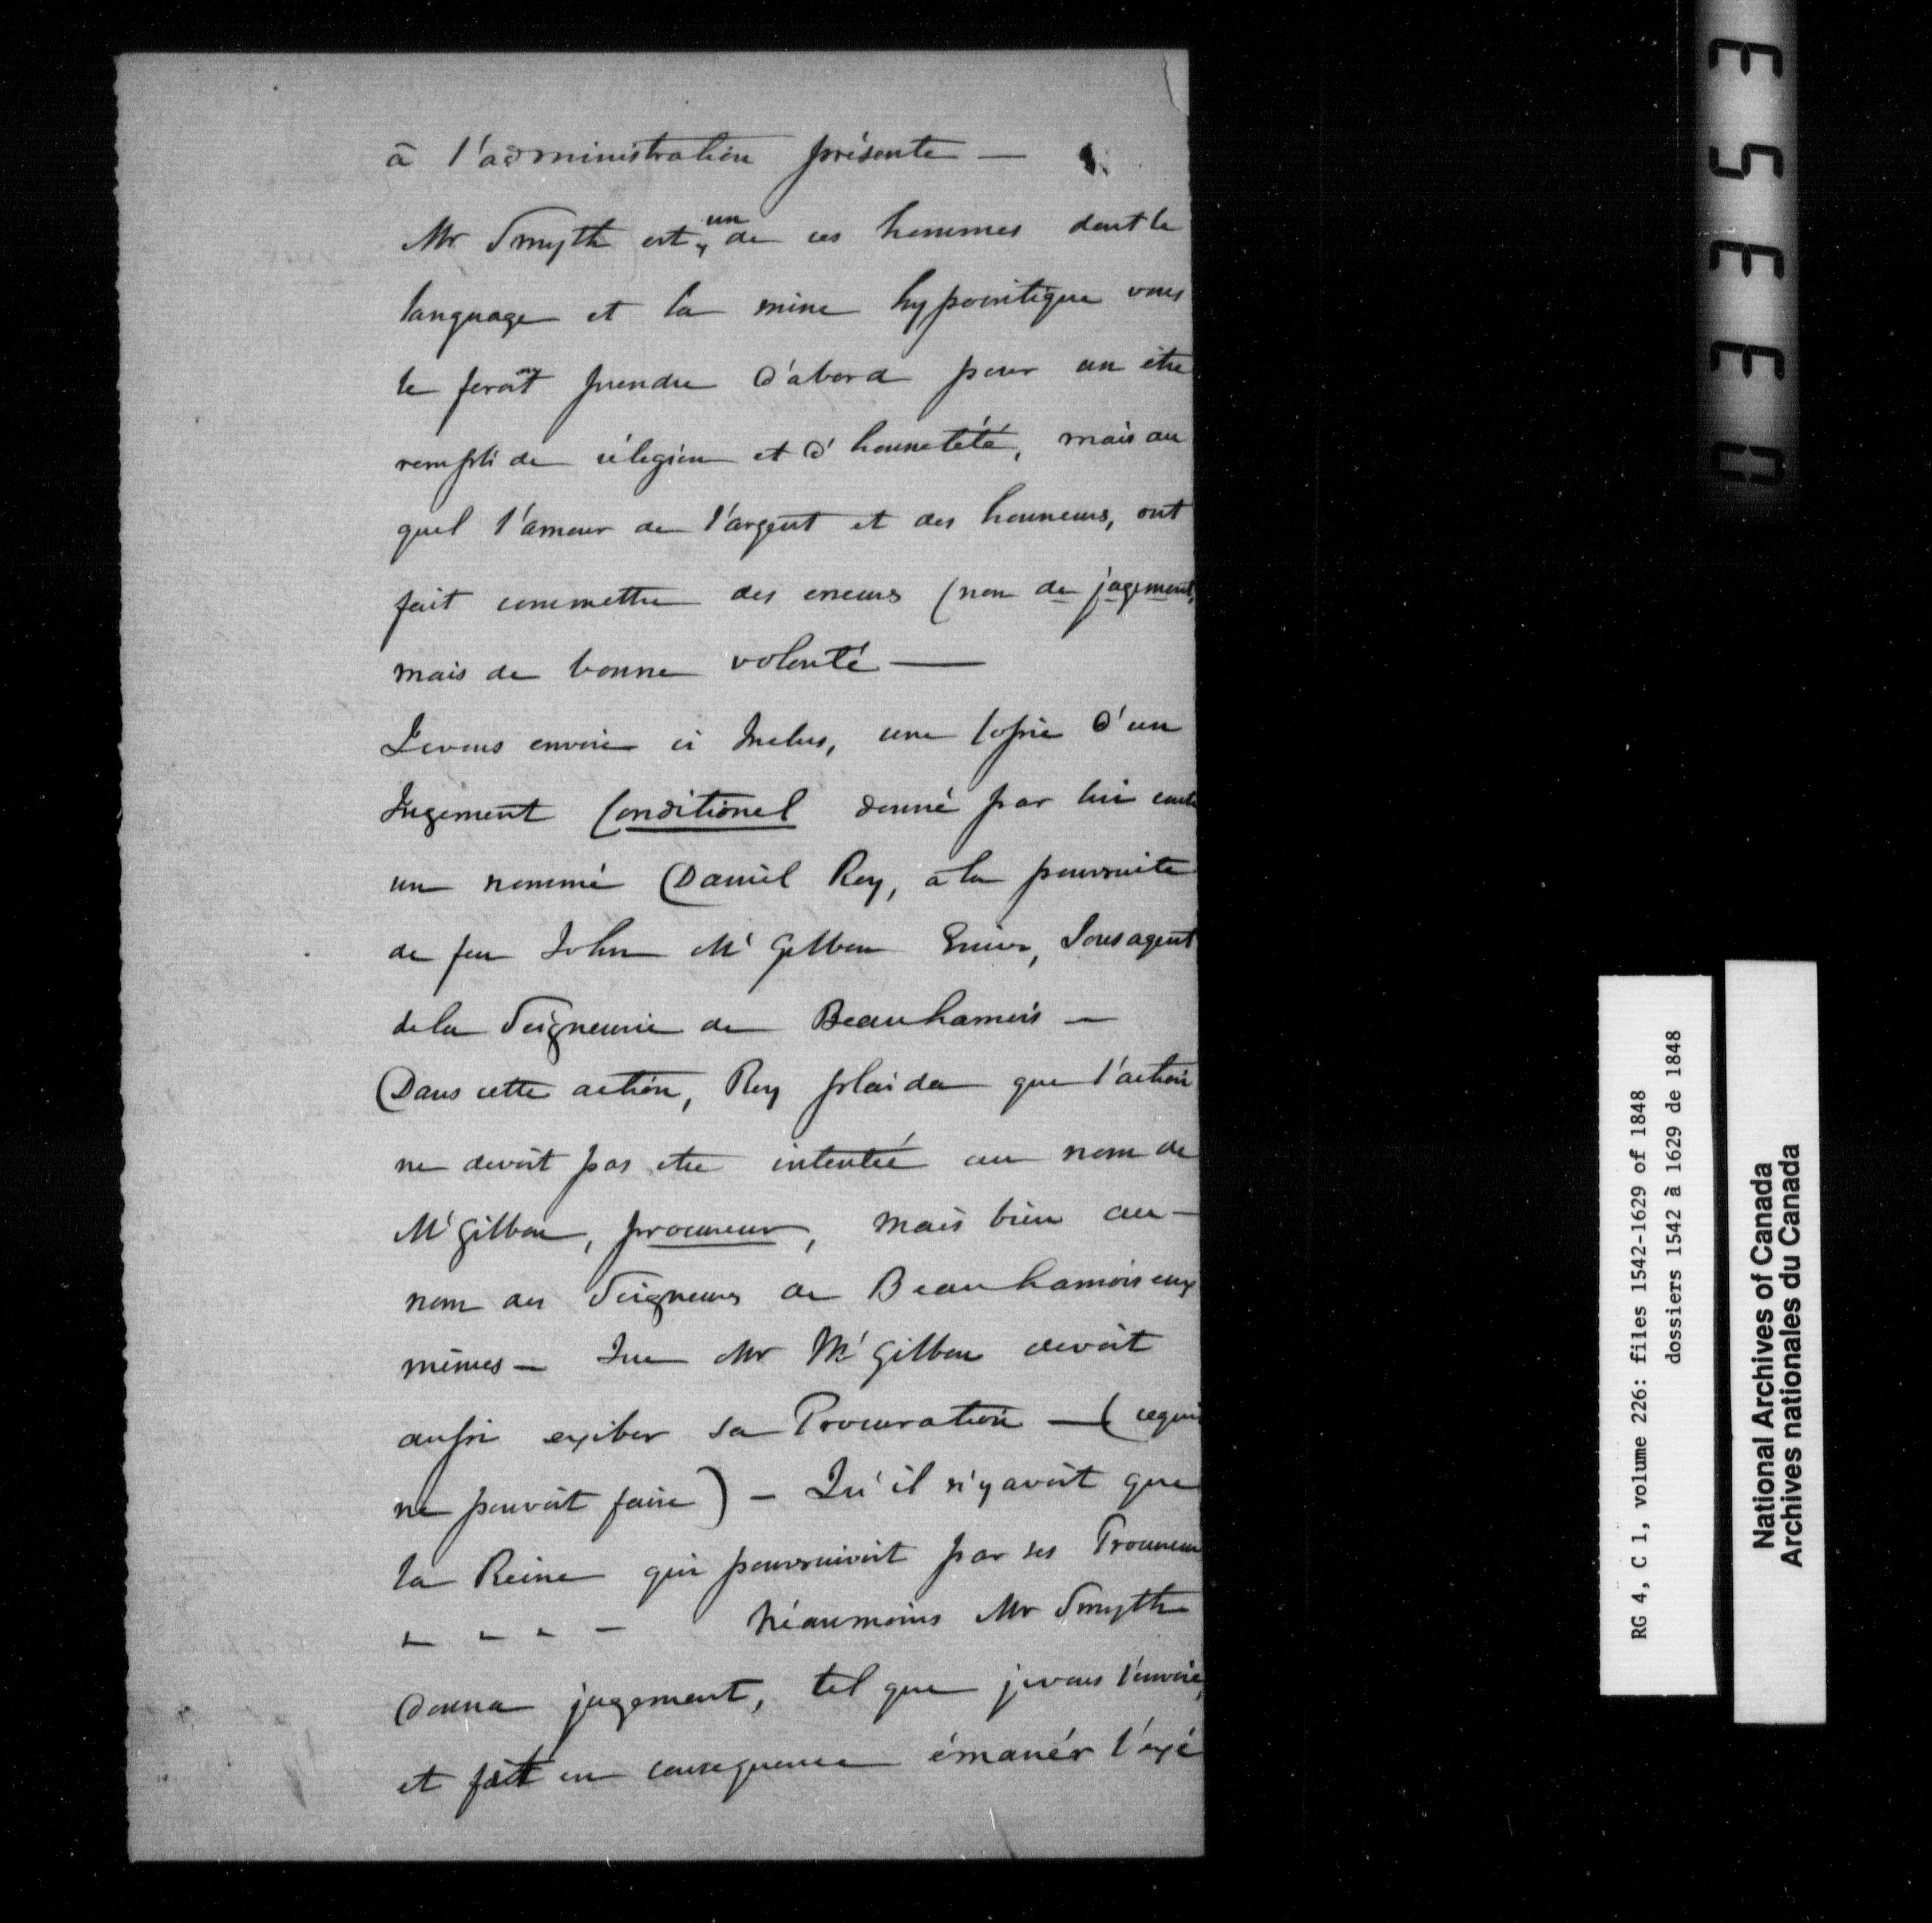 à l'administration présente —
Mr Smyth est un de ces hommes dont le
language et la mine hypocritique vous
le feroit prendre d'abord pour un être
rempli de réligion et d'honnetêté, mais au
quel l'amour de l'argent et des honneurs, ont
fait commettre des erreurs (non de jugement,
mais de bonne volonté —
Je vous envoie ci Inclus, une Copie d'un
Jugement Conditionel donné par lui contre
un nommé Daniel Roy, à la poursuite
de feu John McGibbon Ecuier, Sousagent
de la Seigneurie de Beauharnois —
Dans cette action, Roy plaida que l'action
ne devoit pas etre intentée au nom de
McGibbon, procureur, mais bien au —
nom des Seigneurs de Beauharnois eux
mêmes — Que Mr McGibbon devoit
aussi exiber sa Procuration — (cequi
ne pouvoit faire) — Qu'il n'y avoit que
la Reine qui poursuivoit par ses Procureur
— — — — Néaumoins Mr Smyth
donna jugement, tel que je vous l'envoie,
et fait en consequence émanér l'exé
03353
RG 4, C 1, volume 226: files 1542-1629 of 1848
dossiers 1542 à 1629 de 1848
National Archives of Canada
Archives nationales du Canada